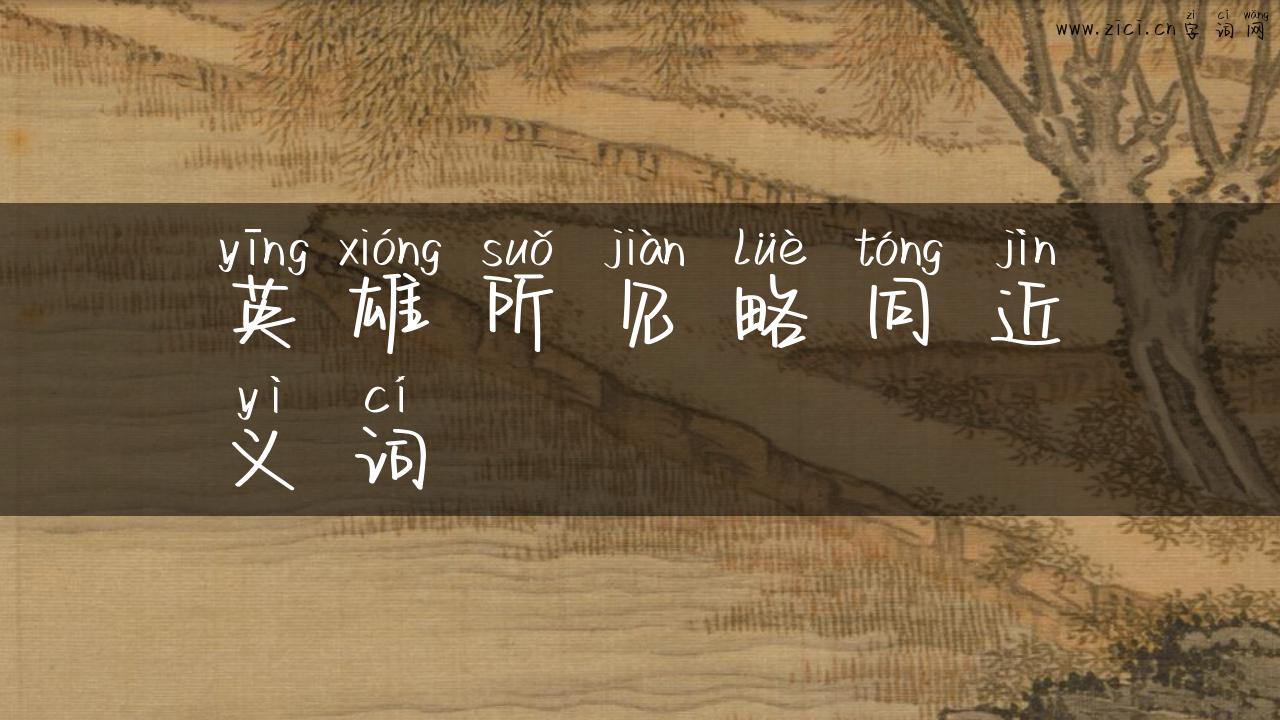 zì cí wǎng
www.zici.cn字词网
yīng xióng suǒ jiàn lüè tóng jìn
英雄所见略同近
yì cí
义词